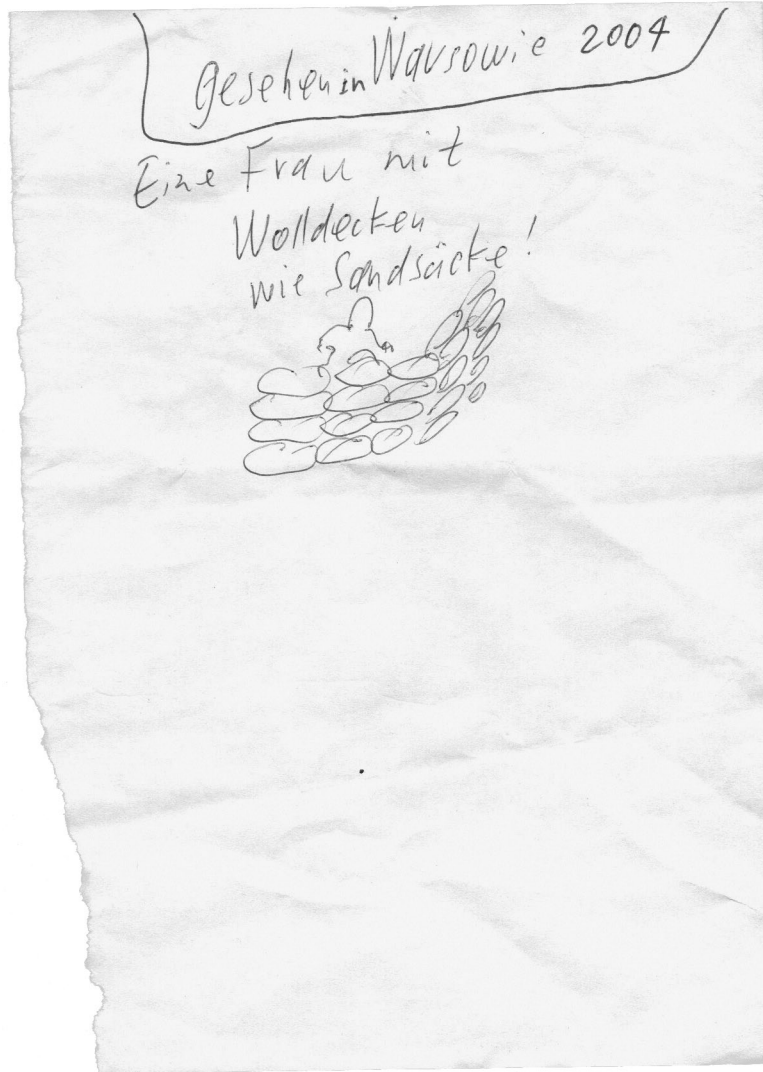 gesehen in Warsowie 2004
Eine Frau mit
Wolldecken
wie Sandsäcke!